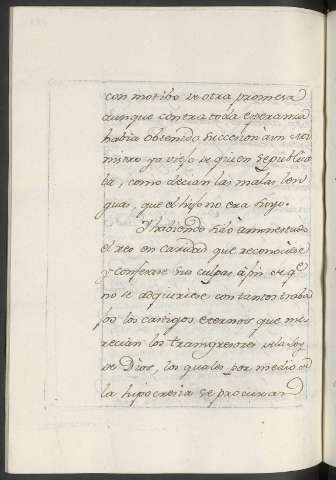 con motibo de otra promesa
aunque contra toda esperanza
habia obtenido succesion a un
mistro ya viejo de quien se publica
ba, como decian las malas len
guas, que el hijo no era suyo.
Y habiendo sido amonestado
el reo en caridad que reconociese
y confesase sus culpas a fin de qe
no se adquiriese con tantos traba
jos los castigos eternos que me
recian los transgresores de la Ley
de Dios, los quales por medio de
la hipocresia se procuran